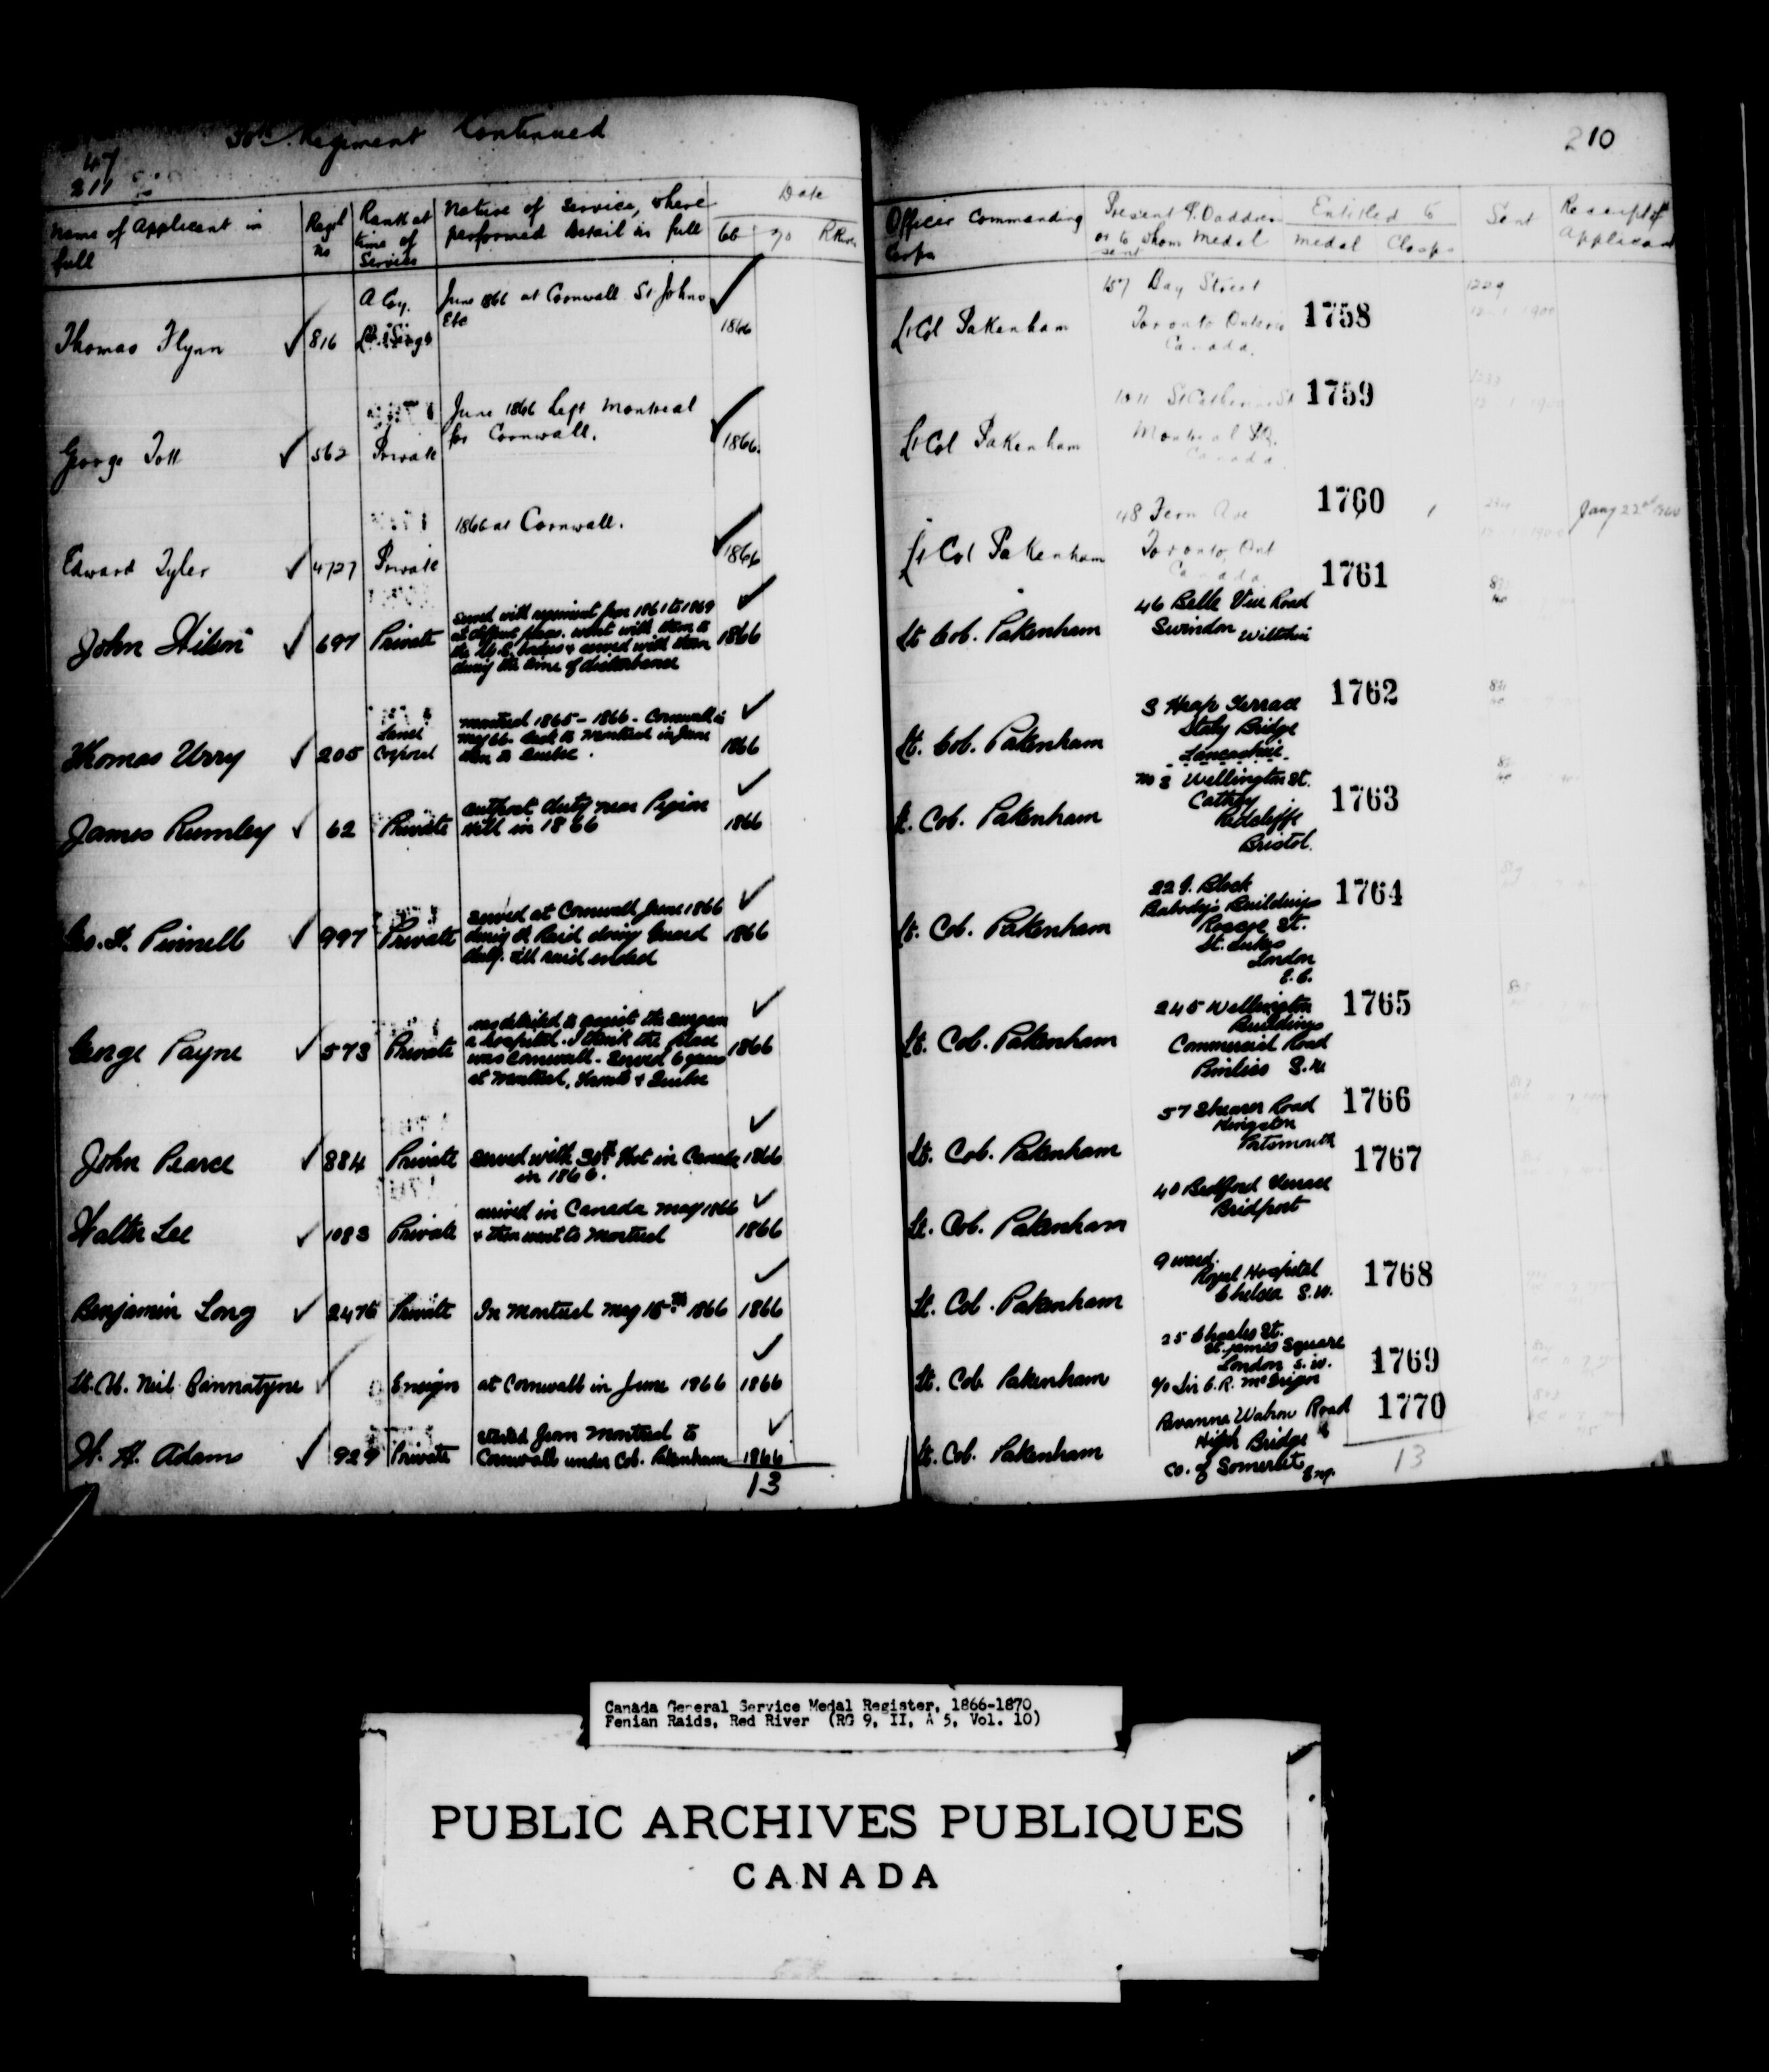 30th Regiment Continued
47
211
210
Name of Applicant in full
Regtl No
Rank at time of Service
Nature of Service, where performed Detail in full
Date
66 70 R River
Officer Commanding Corps
Present P.O address or to whom medal sent
Entitled to
Medal Clasp
Sent
Receipt of Applicant
Thomas Flynn 816 A Coy.
June 1866 at Cornwall St Johns Etc
1866
Lt Col Pakenham
157 Bay Street
Toronto Ontario
Canada.
1758
George 562 Private
June 1866 Left Montreal
for Cornwall.
1866.
Lt Col Pakenham
St Catherine St
Montreal P.Q.
Canada
1759
Edward Tyler 4727 Private
1866 at Cornwall.
1866
Lt Col Pakenham
48 Fern Ave
Toronto, Ont
Canada
1760
Jany 22nd 1900
John 697 Private
Served with regiment from 1861 to 1869
at different places. went with them to
the & served with them
during the time of disturbance
1866
Lt Col. Pakenham
46 Belle Vue Road
Swindon Wiltshire
1761
Thomas Urry 205 Lance Corporal
Montreal 1865 - 1866 - Cornwall in
May 66. back to Montreal in June
then to Quebec.
1866
Lt. Col. Pakenham
3 Heap Terrace
Staly Bridge
Lancashire.
1762
James Rumley 62 Private
outpost duty near Pigeon
Hill in 1866
1866
Lt. Col. Pakenham
No 3 Wellington St.
Cathay
Redcliffe
Bristol.
1763
Geo. H. Pinnell 997 Private
Served at Cornwall June 1866
during the Raid doing Guard
duty. till raid ended
1866
Lt. Col. Pakenham
22 J. Block
Peabody's Buildings
Roscoe St.
St. Lukes
London
E.C.
1764
George Payne 573 Private
was detailed to assist the surgeon
a hospital. I think the place
was Cornwall - Served 6 years
at Montreal, Toronto & Quebec
1866
Lt. Col. Pakenham
245 Wellington
Buildings
Commercial Road
Pimlico S.W.
1765
John Pearce 884 Private
Served with 30th Foot in Canada
in 1866.
1866
Lt. Col. Pakenham
57 Shearer Road
Kingston
Portsmouth
1766
Walter Lee 1083 Private
arrived in Canada May 1866
& then went to Montreal
1866
Lt. Col. Pakenham
40 Bedford Terrace
Bridport
1767
Benjamin Long 2475 Private
In Montreal May 15th 1866
1866
Lt. Col. Pakenham
9 ward.
Royal Hospital
Chelsea S.W.
1768
Neil Bannatyne Ensign
at Cornwall in June 1866
1866
Lt. Col. Pakenham
25 Charles St.
St. James Square
London S.W.
c/o Sir C. R. McGrigor
1769
W. H. Adams 929 Private
Montreal to
Cornwall under Col. Pakenham
1866
Lt. Col. Pakenham
Road
High Bridge
Co. of Somerset Eng.
1770
13
13
Canada General Service Medal Register, 1866-1870
Fenian Raids, Red River (RG 9, II, A 5, Vol. 10)
PUBLIC ARCHIVES PUBLIQUES
CANADA